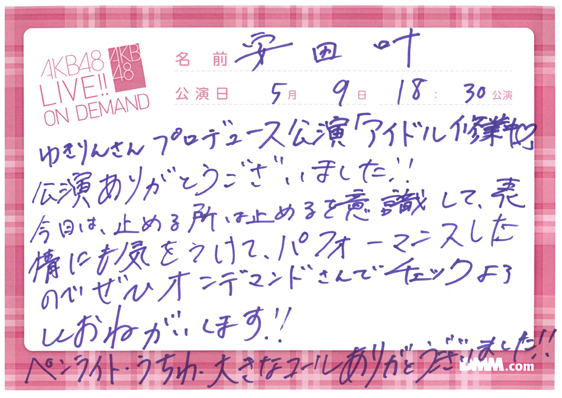 AKB48
LIVE!!
ON DEMAND
AKB
48
名前 安田叶
公演日 5月 9日 18:30公演
ゆきりんさん プロデュース公演「アイドル修業中♡」
公演ありがとうございました!!
今日は、止める所は止めるを意識して、表
情にも気をつけて、パフォーマンスした
のでぜひオンデマンドさんでチェックよろ
しおねがいします!!
ペンライト・うちわ・大きなコールありがとうございました!!
DMM.com